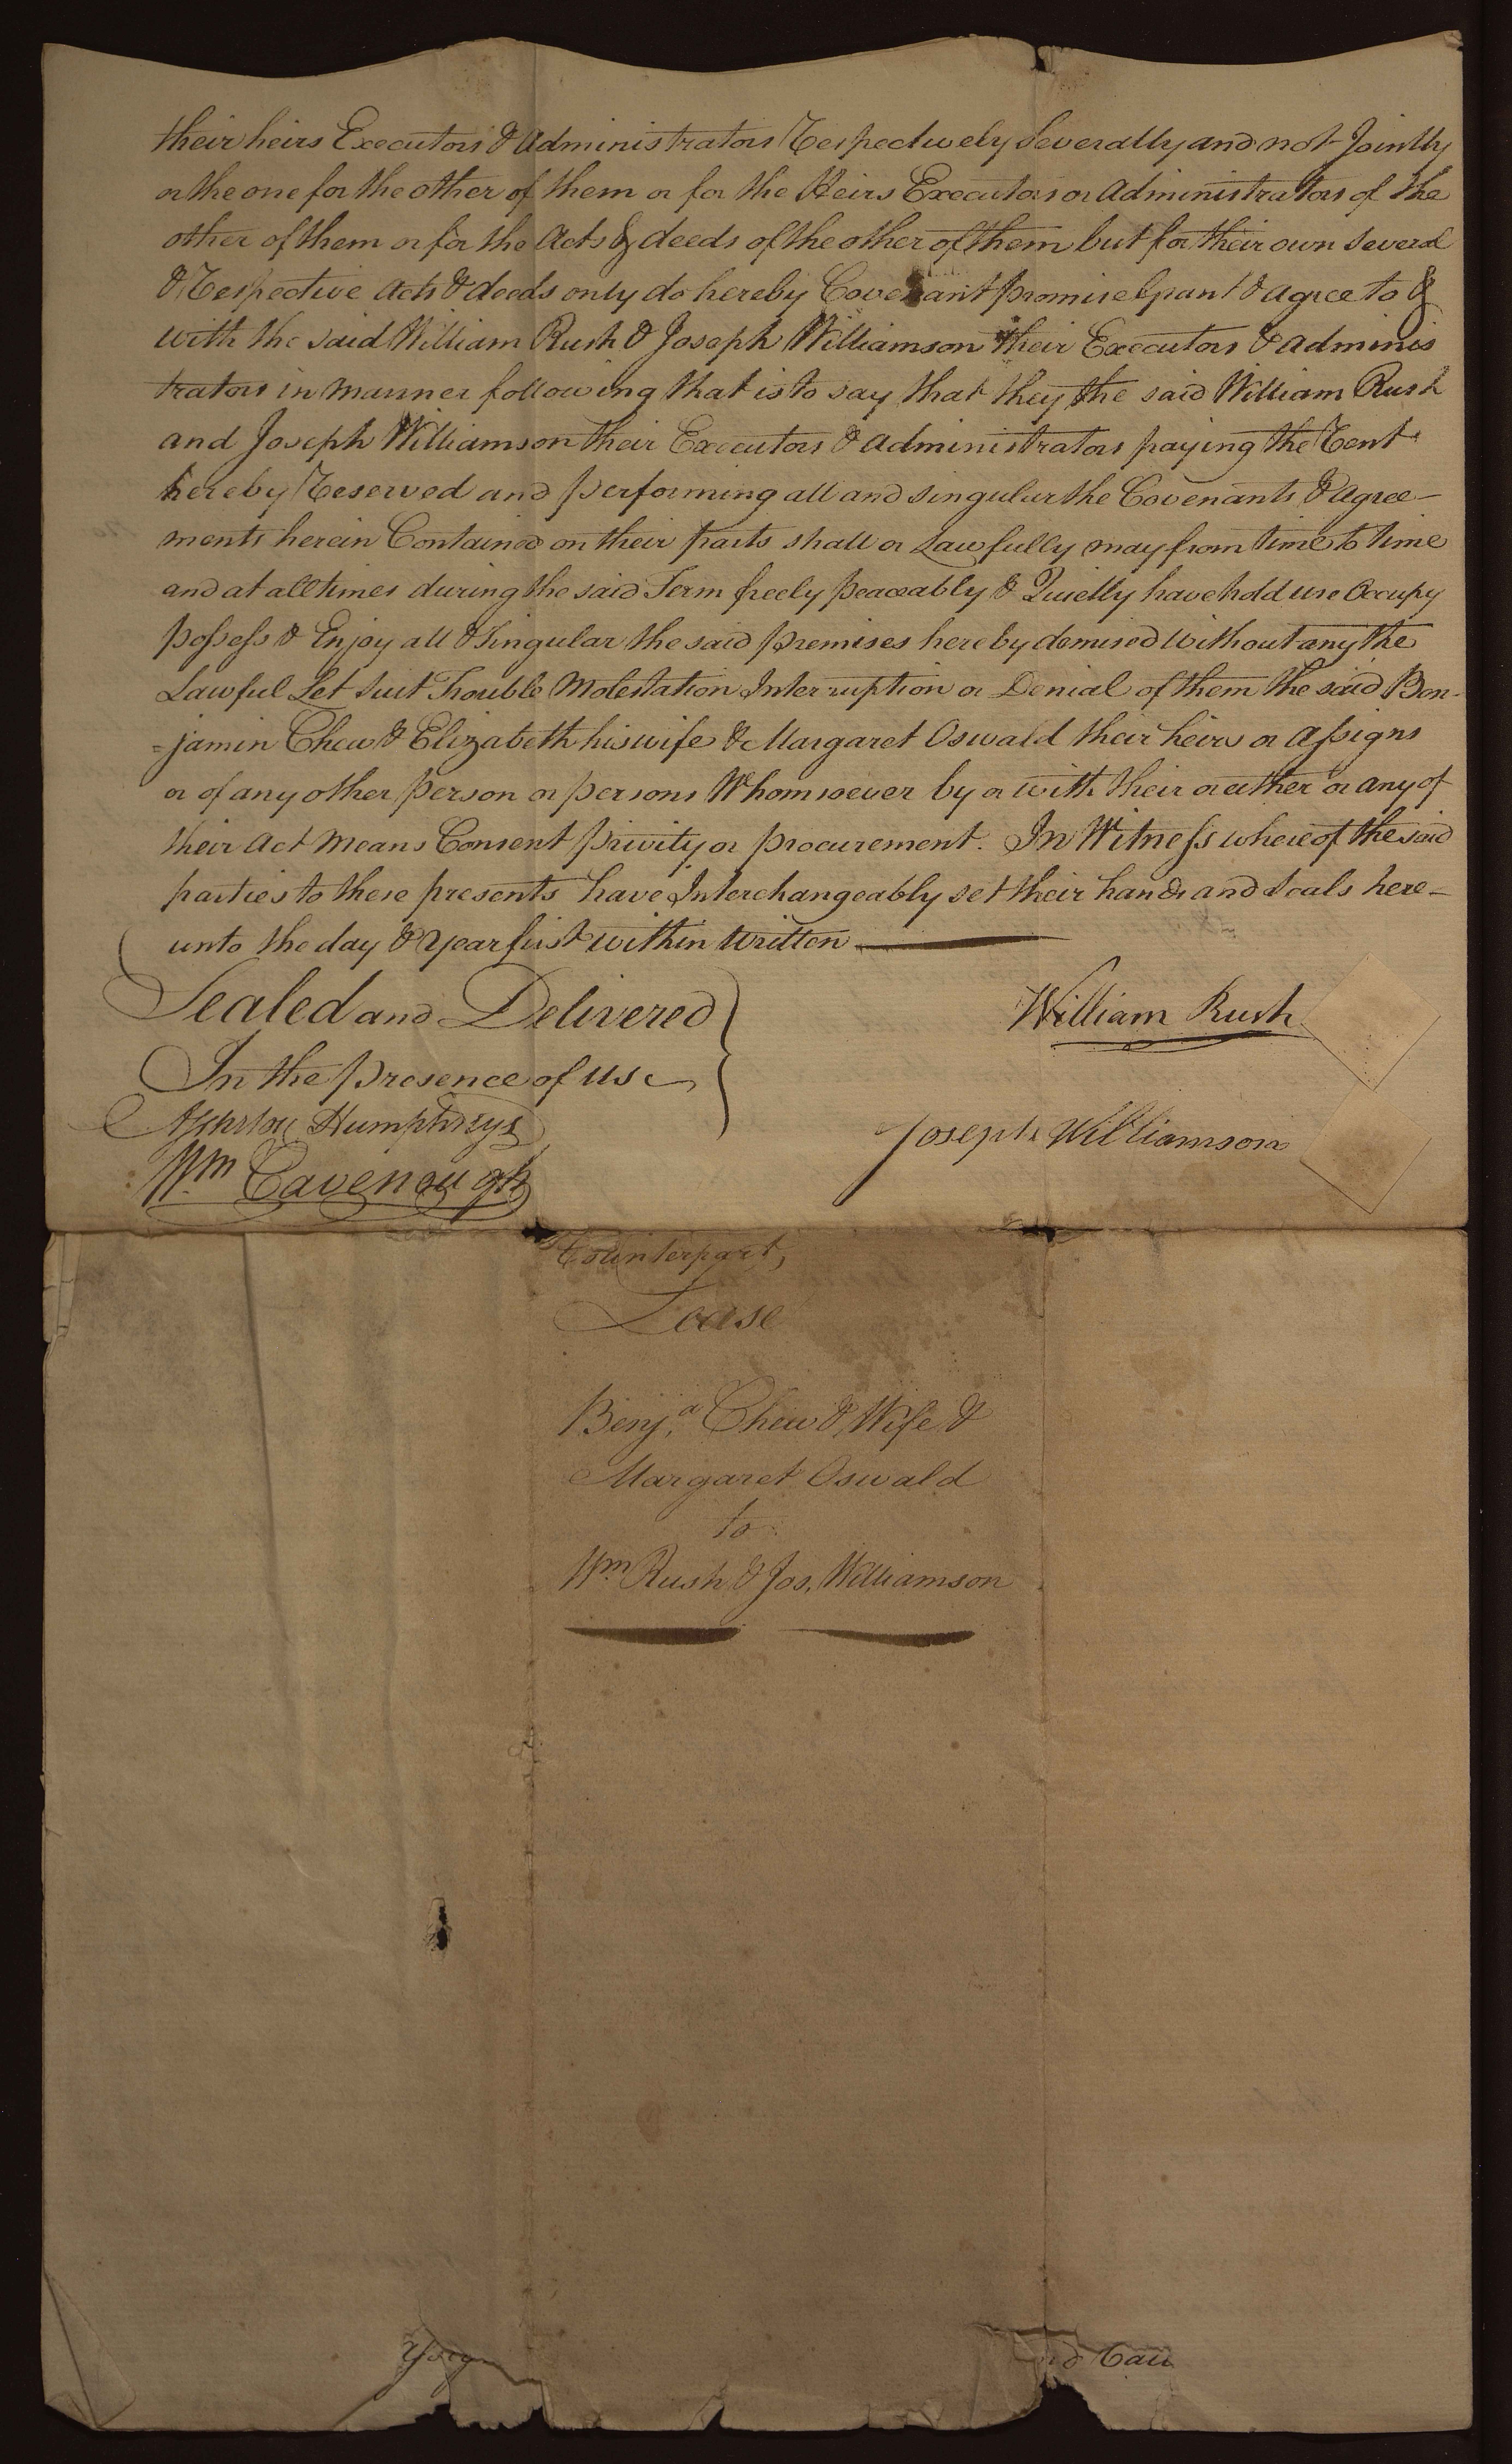 their heirs Executors & Administrators Respectively Severally and not Jointly
or the one for the other of them or for the Heirs Executors or Administrators of the
other of them or for the Acts & deeds of the other of them but for their own Several
& Respective Acts & deeds only do hereby Covenant promise grant & agree to &
with the said William Rush & Joseph Williamson their Executors & Adminis
trators in manner following that is to say that they the said William Rush
and Joseph Williamson their Executors & Administrators paying the Rent
hereby Reserved and performing all and singular the Covenants & Agree-
ments herein Contained on their parts shall or Lawfully may from time to time
and at all times during the said Term freely peaceably & Quietly have hold use Occupy
possess & Enjoy all & Singular the said premises hereby demised without any the
Lawful Let Suit Trouble Molestation Interruption or Denial of them the said Ben-
=jamin Chew & Elizabeth his wife & Margaret Oswald their heirs or Assigns
or of any other person or persons Whomsoever by or with their or either or any of
their Act Means Consent privity or procurement. In Witness whereof the said
parties to these presents have Interchangeably set their hands and Seals here-
unto the day & Year first within written
Sealed and Delivered
In the presence of us
William Rush
Humphreys
Joseph Williamson
Wm Cavenough
Counterpart,
Lease
Benja Chew & Wife &
Margaret Oswald
to
Wm Rush & Jos. Williamson